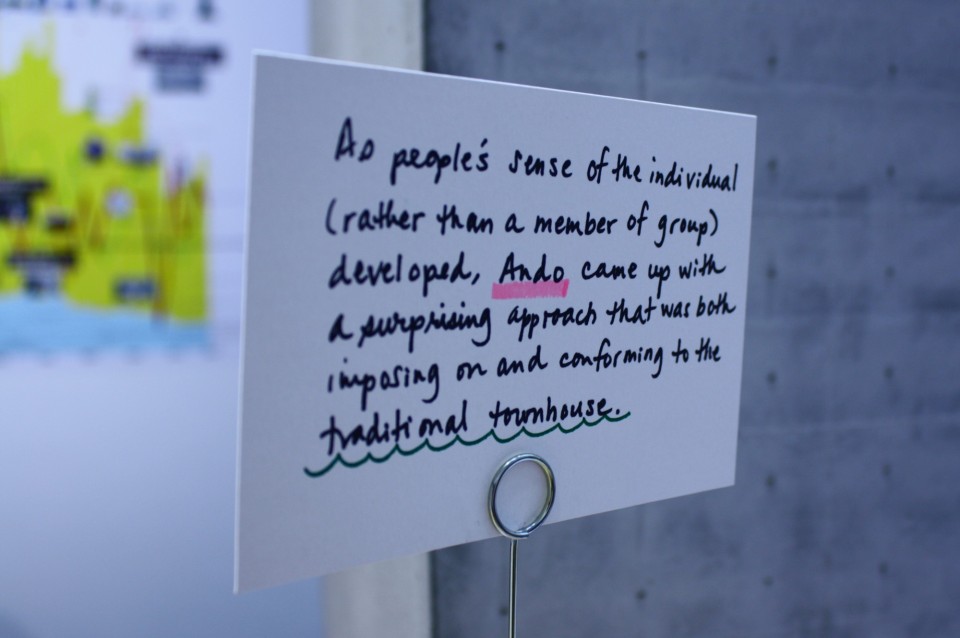 As people's sense of the individual
(rather than a member of group)
developed, Ando came up with
a surprising approach that was both
imposing on and conforming to the
traditional townhouse.